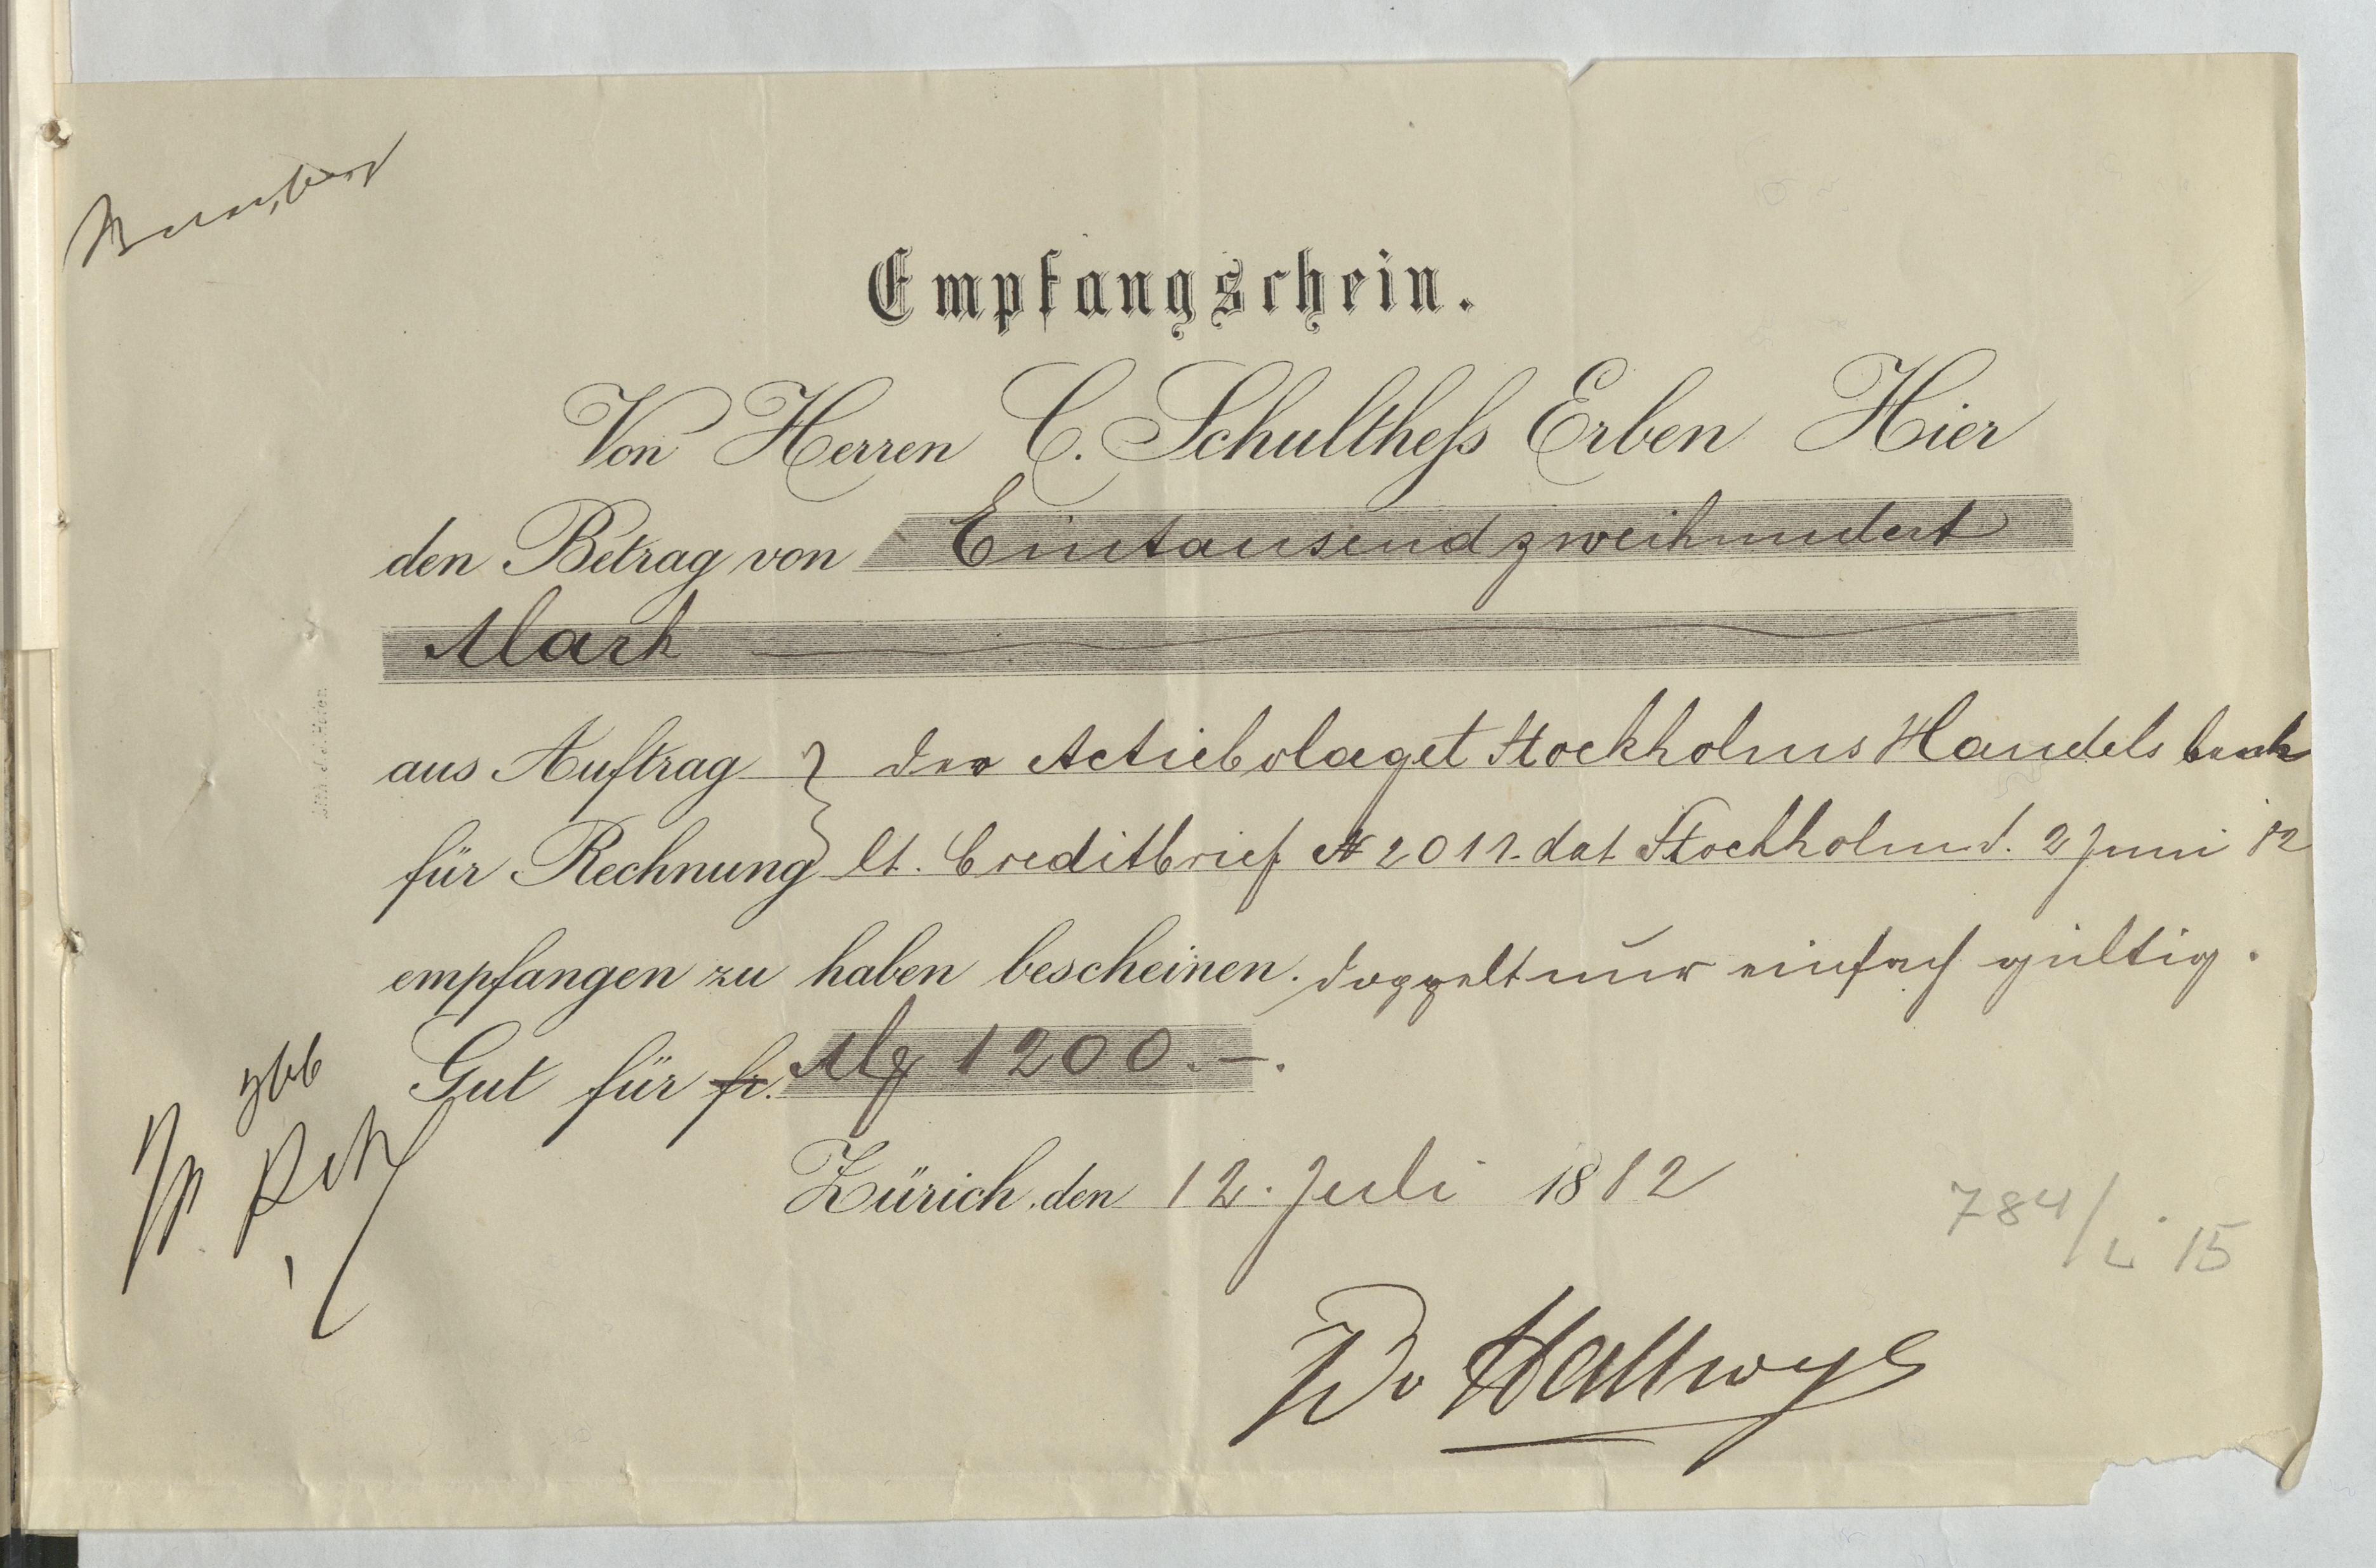 Empfangschein.
Von Herren C. Schulthess Erben Hier
den Betrag von Eintausendzweihundert
Mark
aus Auftrag } der Actiebolaget Stockholms Handels bank
für Rechnung } lt. Creditbrief № 2011. dat Stockholm d. 2 Juni 82
empfangen zu haben bescheinen. doppelt nur einfach gültig.
Gut für fr. Mk 1200.—.
Zürich, den 12. Juli 1882
784/ i 15
W v Hallwyl